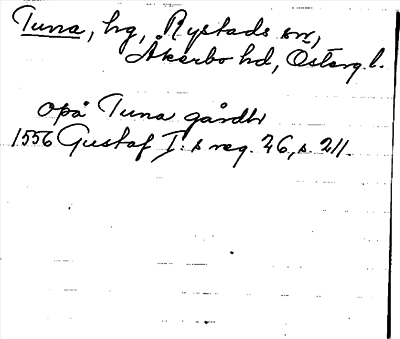 Tuna, hg, Rystads sn,
Åkerbo hd, Österg. l.
opå Tuna gårdh
1556 Gustaf I:s reg. 26, s. 211.